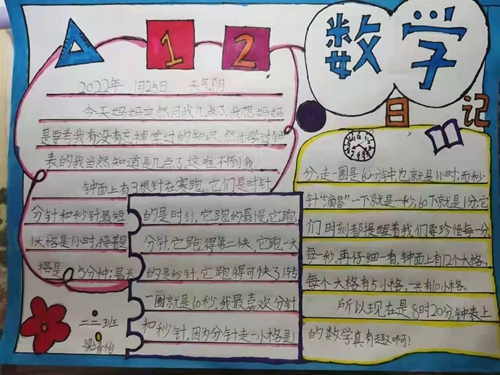 1 2
数学
日记
2022年 1月25日 天气阴
今天妈妈突然问我几点了,我想妈妈
是要考我有没有忘掉学过的知识。然而学过钟
表的我当然知道是几点了,这难不到我。
钟面上有3根针在赛跑,它们是时针
分针和秒针最短
的是时针,它跑的最慢,它跑一
大格是1小时,
分针,它跑得第二快,它跑一大
格是5分钟;最长
的是秒针,它跑得可快了!转
一圈就是60秒,我最喜欢分针
和秒针,因为分针走一小格是1
分,走一圈是60分钟也就是1小时,而秒
针“滴答”一下就是一秒,60下就是1分,它
们时刻都提醒着我们要珍惜每一分
每一秒。再仔细一看,钟面上有12个大格,
每个大格有5小格,一共有60小格。
所以现在是8时20分,钟表上
的数学真有趣啊!
二二班